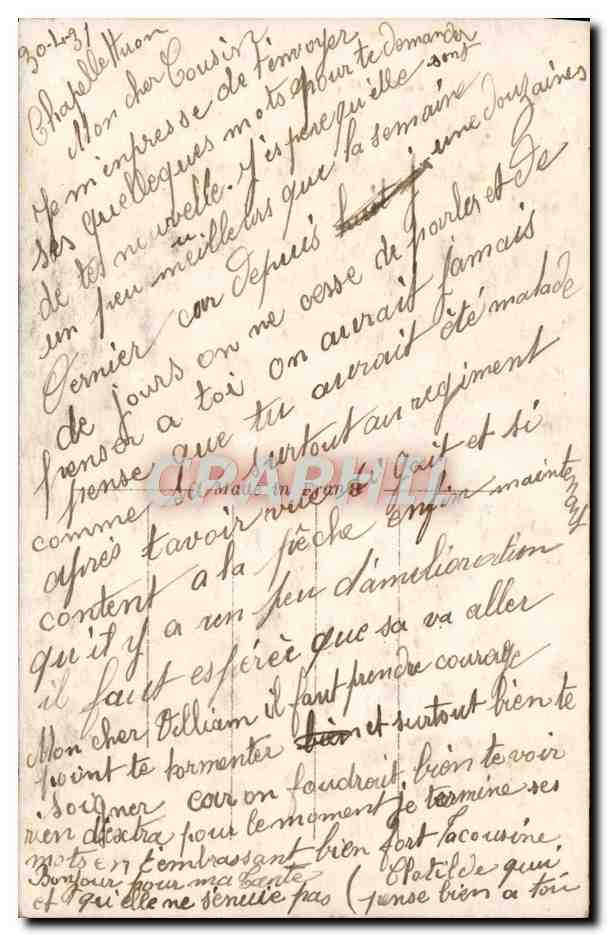 30-4-31
Chapelle Huon
Mon cher Cousin
Je m'enpresse de t'envoyer
ses quelleques mots pour te demander
de tes nouvelle. J'éspère qu'elle sont
un peu meilleurs que la semaine
Dernier car depuis huit j une douzaines
de jours on ne cesse de parler et de
penser a toi on aurait jamais
pense que tu aurait été malade
comme sa surtout au regiment
après t'avoir vue si gait et si
content a la pêche enfin maintenant
qu'il y a un peu d'amélioration
il faut espérée que sa va aller
Mon cher Villiam il faut prendre courage
point te tormenter bien et surtout bien te
soigner car on foudroit bien te voir
rien d'extra pour le moment je termine ses
mots en t'embrassant bien fort Ta cousine
Bonjour pour ma tante Clotilde qui
et qu'elle ne s'énuie pas ( pense bien a toi
Made in France
CPAPHIL